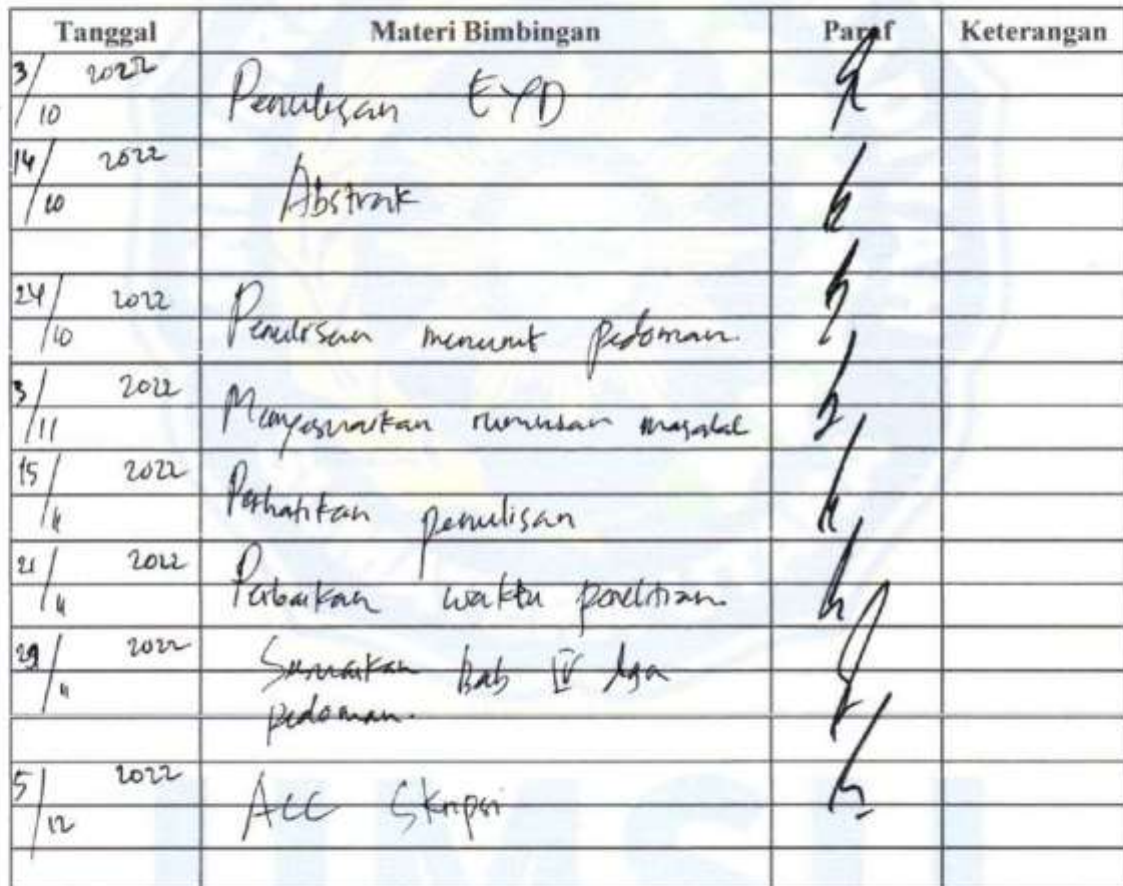 Tanggal Materi Bimbingan Paraf Keterangan
3/10 2022 Penulisan EYD
14/10 2022 Abstrak
24/10 2022 Penulisan menurut pedoman.
3/11 2022 Menyesuaikan rumusan masalah
15/11 2022 Perhatikan penulisan
21/11 2022 Perbaikan waktu penelitian.
29/11 2022 Sesuaikan Bab IV dgn
pedoman.
5/12 2022 ACC Skripsi